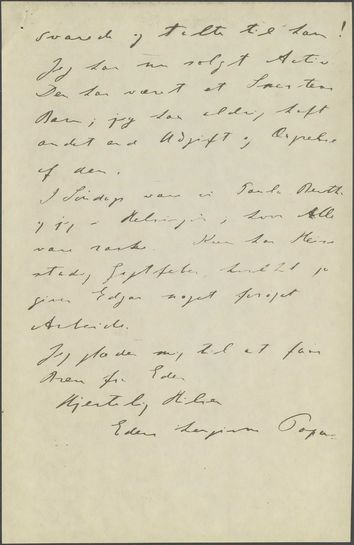 svarede og talte til ham!
Jeg har nu solgt Activ
Den har været et Smertens
Barn; jeg har aldrig haft
andet end Udgift og Ærgrelse
af den.
I Søndags vare vi
og jeg i Helsingør, hvor Alle
vare raske. Kun har
stadig Gigtfeber, hvilket jo
giver Edgar noget forøget
Arbeide.
Jeg glæder mig til at faa
Brev fra Eder
Hjertelig Hilsen
Eders hengivne Papa.